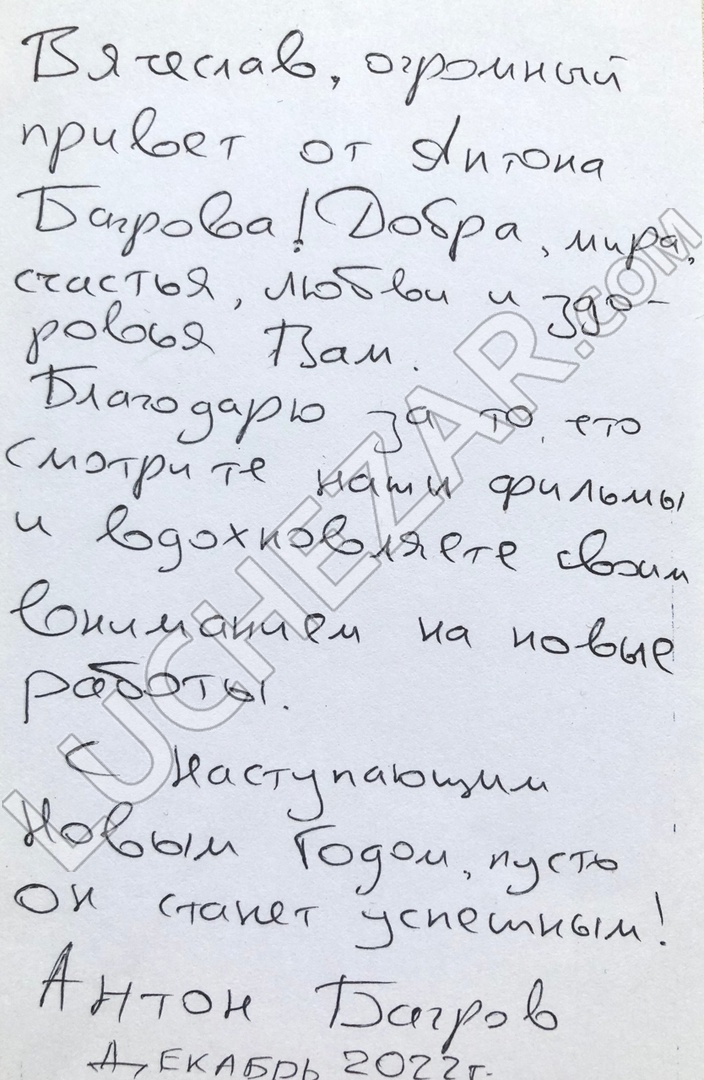 Вячеслав, огромный
привет от Антона
Багрова! Добра, мира,
счастья, любви и здо-
ровья Вам.
Благодарю за то, что
смотрите наши фильмы
и вдохновляете своим
вниманием на новые
работы.
С наступающим
Новым Годом, пусть
он станет успешным!
Антон Багров
ДЕКАБРЬ 2022г.
LUCHEZAR.COM